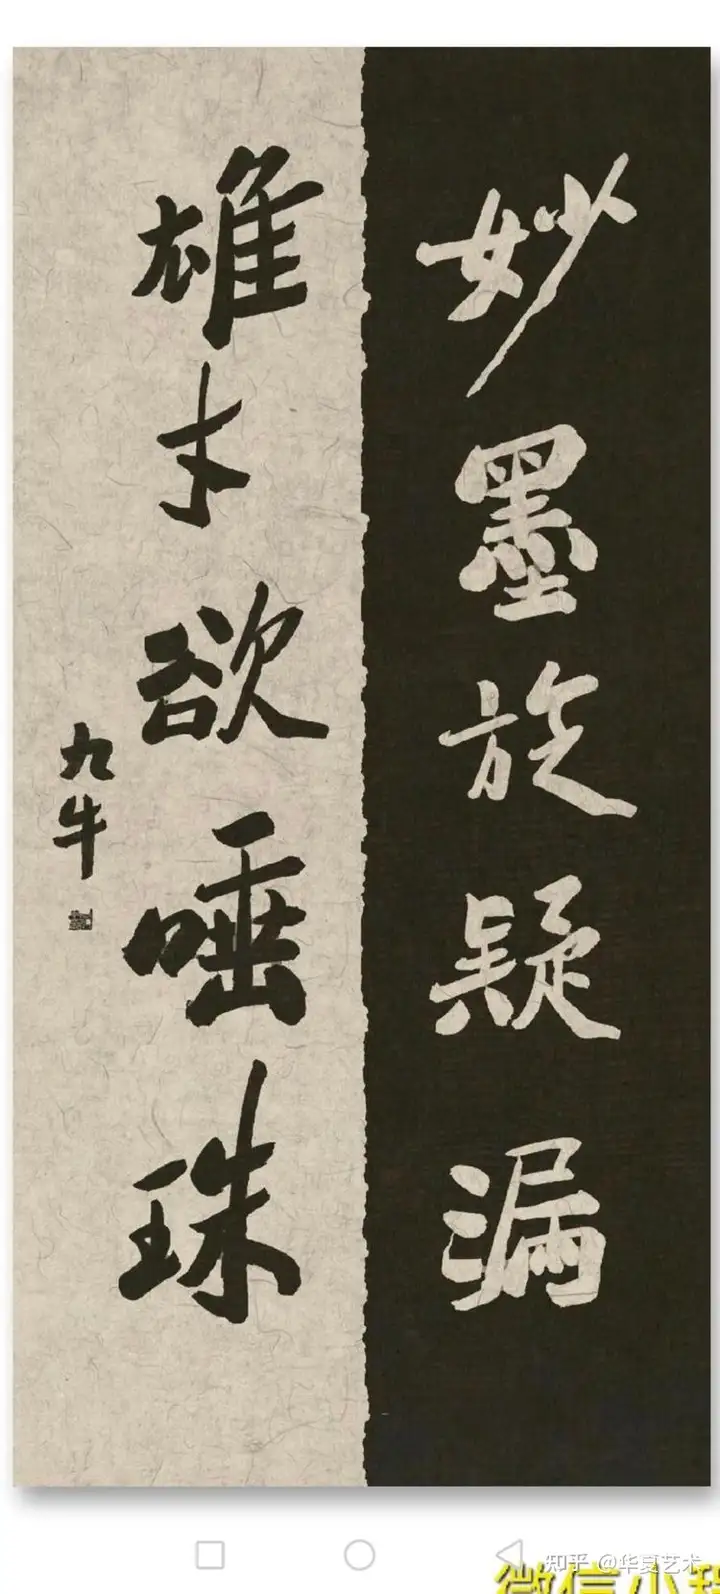 妙墨旋疑漏
雄才欲唾珠
九牛
知乎 @华夏艺术
微信小